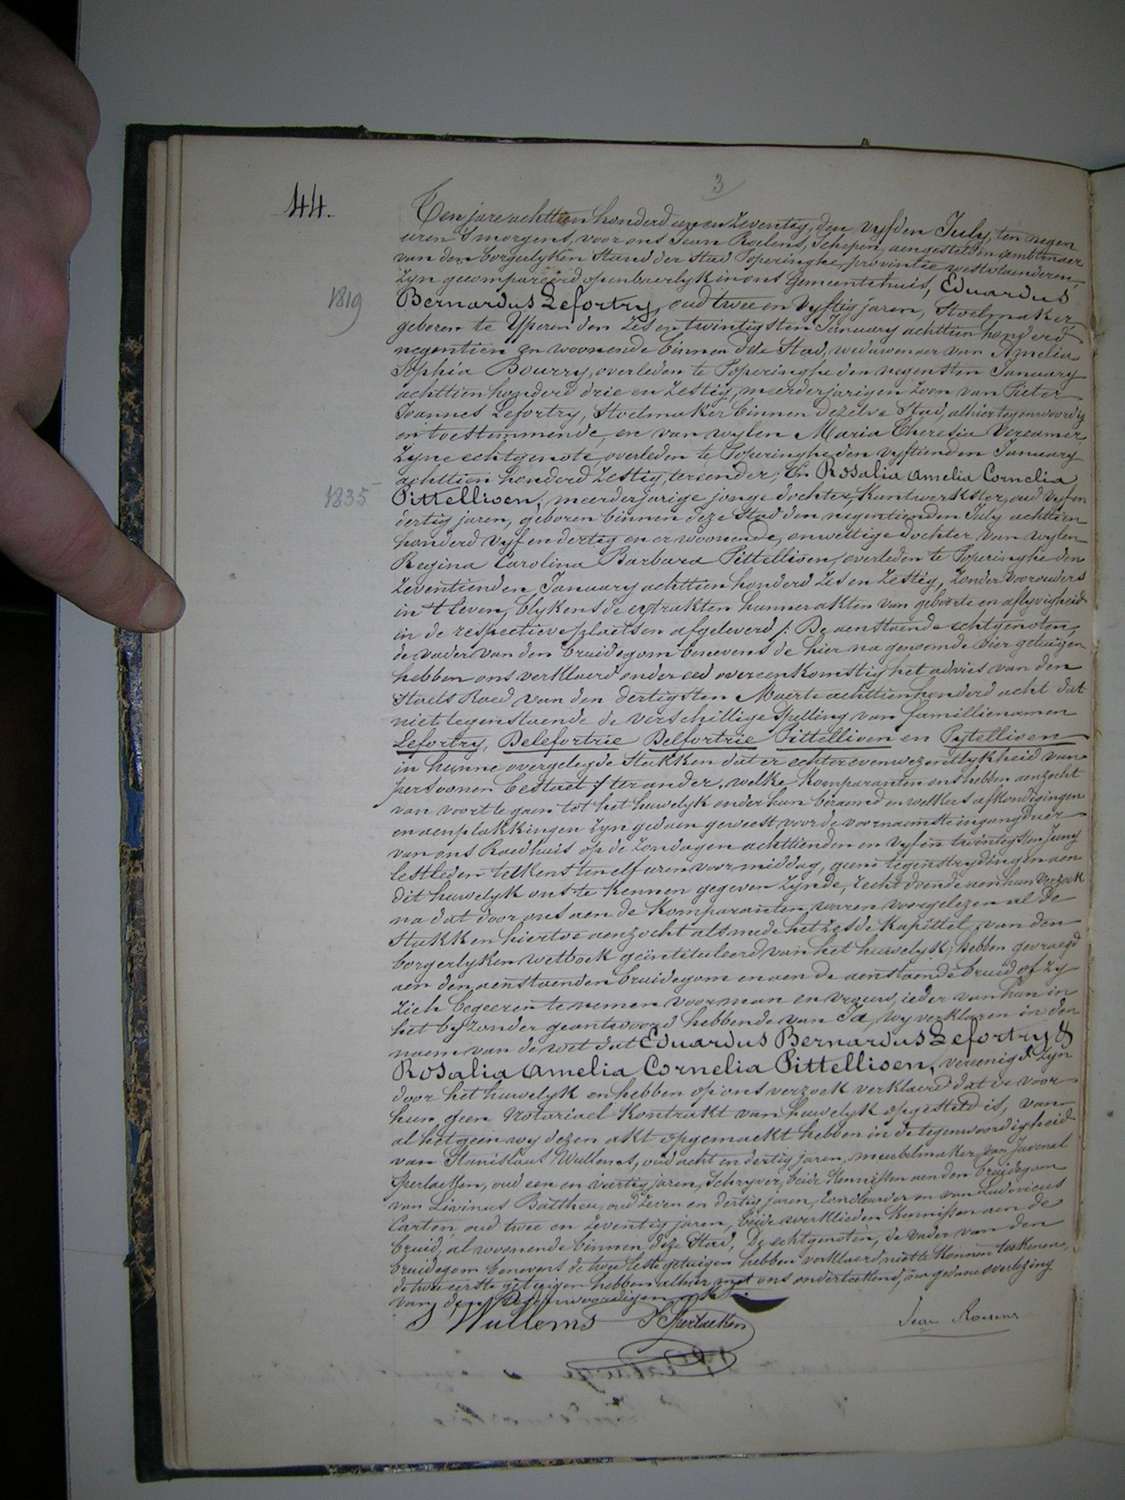 3
44.
Ten jare achttien honderd een en zeventig, den vyfden July, ten negen
uren 's morgens, voor ons Jean Roelens, Schepen, aengestelden ambtenaer
van den borgerlyken Stand der Stad Poperinghe, provintie westvlaanderen,
zyn gecompareerd openbaerlyk in ons Gemeentehuis, Eduardus
1819
Bernardus Lefortry, oud twee en vyftig jaren, Stoelmaker,
geboren te Yperen den zes en twintigsten January achttien honderd
negentien en woonende binnen deze Stad, weduwenaer van Amelia
Sophia Bourry, overleden te Poperinghe den negensten January
achttien honderd drie en zestig, meerderjarigen zoon van Pieter
Joannes Lefortry, Stoelmaker binnen dezelve Stad, alhier tegenwoordig
en toestemmende, en van wylen Maria Theresia
zyne echtgenote, overleden te Poperinghe den vyftienden January
achttien honderd zestig, ter eender; En Rosalia Amelia Cornelia
1835
Pittellioen, meerderjarige jonge dochter, Kantwerkster, oud vyf en
dertig jaren, geboren binnen deze Stad den negentienden July achttien
honderd vyf en dertig en er woonende, onwettige dochter van wylen
Regina Carolina Barbara Pittellioen, overleden te Poperinghe den
zeventienden January achttien honderd zes en zestig, zonder voorouders
in 't leven, blykens de extrakten hunner akten van geboorte en aflyvigheid
in de respectieve plaetsen afgeleverd /: De aenstaende echtgenoten,
de vader van den bruidegom benevens de hier na genoemde vier getuigen
hebben ons verklaerd onder eed overeenkomstig het advies van den
Staets Raed van den dertigsten Maerte achttien honderd acht dat
niet tegenstaende de verschillige spelling van famillienamen
Lefortry, Delefortrie Delfortrie Pittellioen en Pytellioen
in hunne overgelegde stukken dat er echter evenwezendlykheid van
persoonen bestaet :/ ter ander. welke Komparanten ons hebben aenzocht
van voort te gaen tot het huwelyk onder hun beraemd en welkers afkondigingen
en aenplakkingen zyn gedaen geweest voor de voornaemste ingangdeur
van ons Raedhuis op de zondagen achttienden en vyf en twintigsten Juny
lestleden telkens ten elf uren voormiddag, geene tegenstrydingen aen
dit huwelyk ons te kennen gegeven zynde, recht doende aen hun verzoek
na dat door ons aen de Komparanten waren voorgelezen al de
Stukken hiertoe aenzocht alsmede het zesde Kapittel van den
borgerlyken wetboek geïntituleerd van het huwelyk, hebben gevraegd
aen den aenstaenden bruidegom en aen de aenstaende bruid of zy
zich begeeren te nemen voor man en vrouw, ieder van hun in
het byzonder geantwoord hebbende van Ja, wy verklaren in den
naem van de wet dat Eduardus Bernardus Lefortry &
Rosalia Amelia Cornelia Pittellioen, vereenigd zyn
door het huwelyk en hebben op ons verzoek verklaerd dat er voor
hun geen Notariael Kontrakt van huwelyk opgesteld is, van
al het geen wy dezen akt opgemaekt hebben in de tegenwoordigheid
van Stanislaus Wullems, oud acht en dertig jaren, meubelmaker, van Juvenal
oud een en veertig jaren, Schryver, beide Kennissen aen den bruidegom
van Livinus Battheu, oud zeven en dertig jaren, en van Ludovicus
Carton, oud twee en zeventig jaren, beide werklieden Kennissen aen de
bruid, al woonende binnen deze Stad, De echtgenoten, de vader van den
bruidegom benevens de twee leste getuigen hebben verklaerd niet te kunnen teekenen,
de twee eerste getuigen hebben alhier met ons onderteekend, naer gedaene voorlezing
van den tegenwoordigen akt.
S Wullems